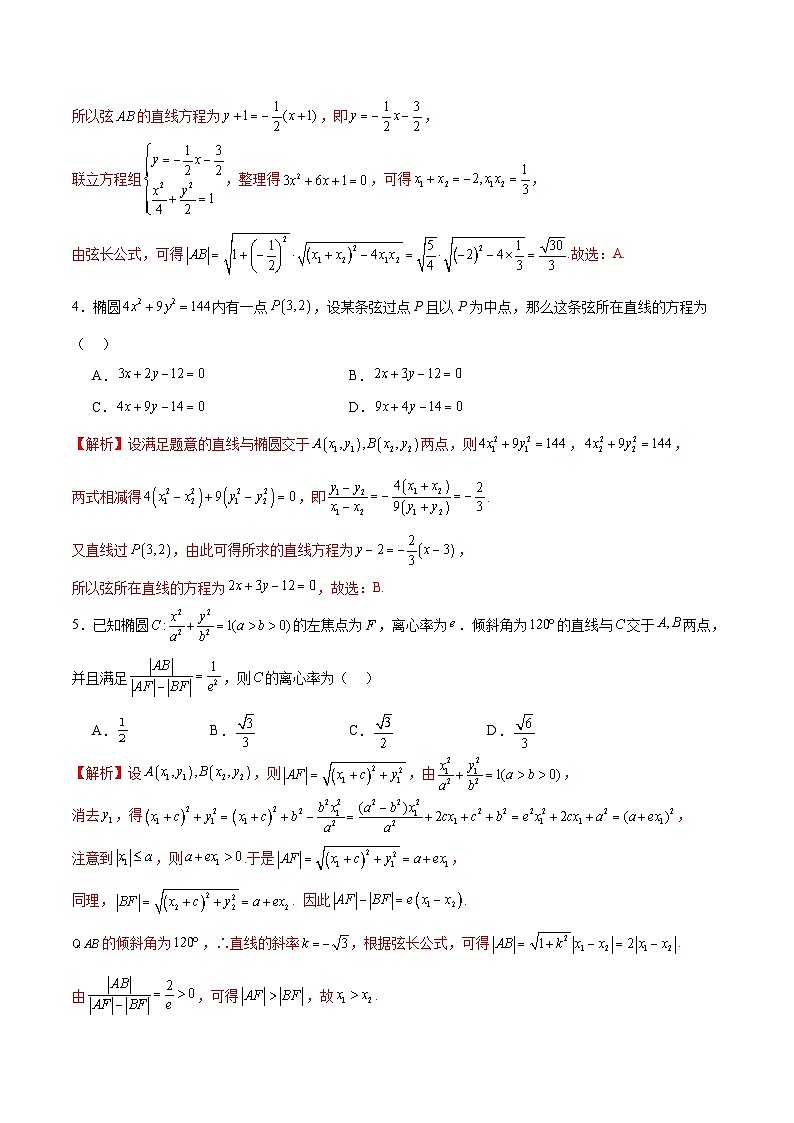 所以弦AB的直线方程为y+1=-\frac{1}{2}(x+1)，即y=-\frac{1}{2}x-\frac{3}{2}，
联立方程组\begin{cases}y=-\frac{1}{2}x-\frac{3}{2}\\\frac{x^2}{4}+\frac{y^2}{2}=1\end{cases}，整理得3x^2+6x+1=0，可得x_1+x_2=-2,x_1x_2=\frac{1}{3}，
由弦长公式，可得|AB|=\sqrt{1+\left(-\frac{1}{2}\right)^2}\cdot\sqrt{(x_1+x_2)^2-4x_1x_2}=\sqrt{\frac{5}{4}}\cdot\sqrt{(-2)^2-4\times\frac{1}{3}}=\frac{\sqrt{30}}{3}.故选：A.
4．椭圆4x^2+9y^2=144内有一点P(3,2)，设某条弦过点P且以P为中点，那么这条弦所在直线的方程为
（ ）
A．3x+2y-12=0 B．2x+3y-12=0
C．4x+9y-14=0 D．9x+4y-14=0
【解析】设满足题意的直线与椭圆交于A(x_1,y_1),B(x_2,y_2)两点，则4x_1^2+9y_1^2=144，4x_2^2+9y_2^2=144，
两式相减得4(x_1^2-x_2^2)+9(y_1^2-y_2^2)=0，即\frac{y_1-y_2}{x_1-x_2}=-\frac{4(x_1+x_2)}{9(y_1+y_2)}=-\frac{2}{3}.
又直线过P(3,2)，由此可得所求的直线方程为y-2=-\frac{2}{3}(x-3)，
所以弦所在直线的方程为2x+3y-12=0，故选：B.
5．已知椭圆C:\frac{x^2}{a^2}+\frac{y^2}{b^2}=1(a>b>0)的左焦点为F，离心率为e．倾斜角为120°的直线与C交于A,B两点，
并且满足\frac{|AB|}{|AF|-|BF|}=\frac{1}{e^2}，则C的离心率为（ ）
A．\frac{1}{2} B．\frac{\sqrt{3}}{3} C．\frac{\sqrt{3}}{2} D．\frac{\sqrt{6}}{3}
【解析】设A(x_1,y_1),B(x_2,y_2)，则|AF|=\sqrt{(x_1+c)^2+y_1^2}，由\frac{x_1^2}{a^2}+\frac{y_1^2}{b^2}=1(a>b>0)，
消去y_1，得(x_1+c)^2+y_1^2=(x_1+c)^2+b^2-\frac{b^2x_1^2}{a^2}=\frac{(a^2-b^2)x_1^2}{a^2}+2cx_1+c^2+b^2=e^2x_1^2+2cx_1+a^2=(a+ex_1)^2，
注意到|x_1|≤a，则a+ex_1>0.于是|AF|=\sqrt{(x_1+c)^2+y_1^2}=a+ex_1，
同理，|BF|=\sqrt{(x_2+c)^2+y_2^2}=a+ex_2．因此|AF|-|BF|=e(x_1-x_2).
Q AB的倾斜角为120°，∴直线的斜率k=-\sqrt{3}，根据弦长公式，可得|AB|=\sqrt{1+k^2}|x_1-x_2|=2|x_1-x_2|.
由\frac{|AB|}{|AF|-|BF|}=\frac{2}{e}>0，可得|AF|>|BF|，故x_1>x_2．